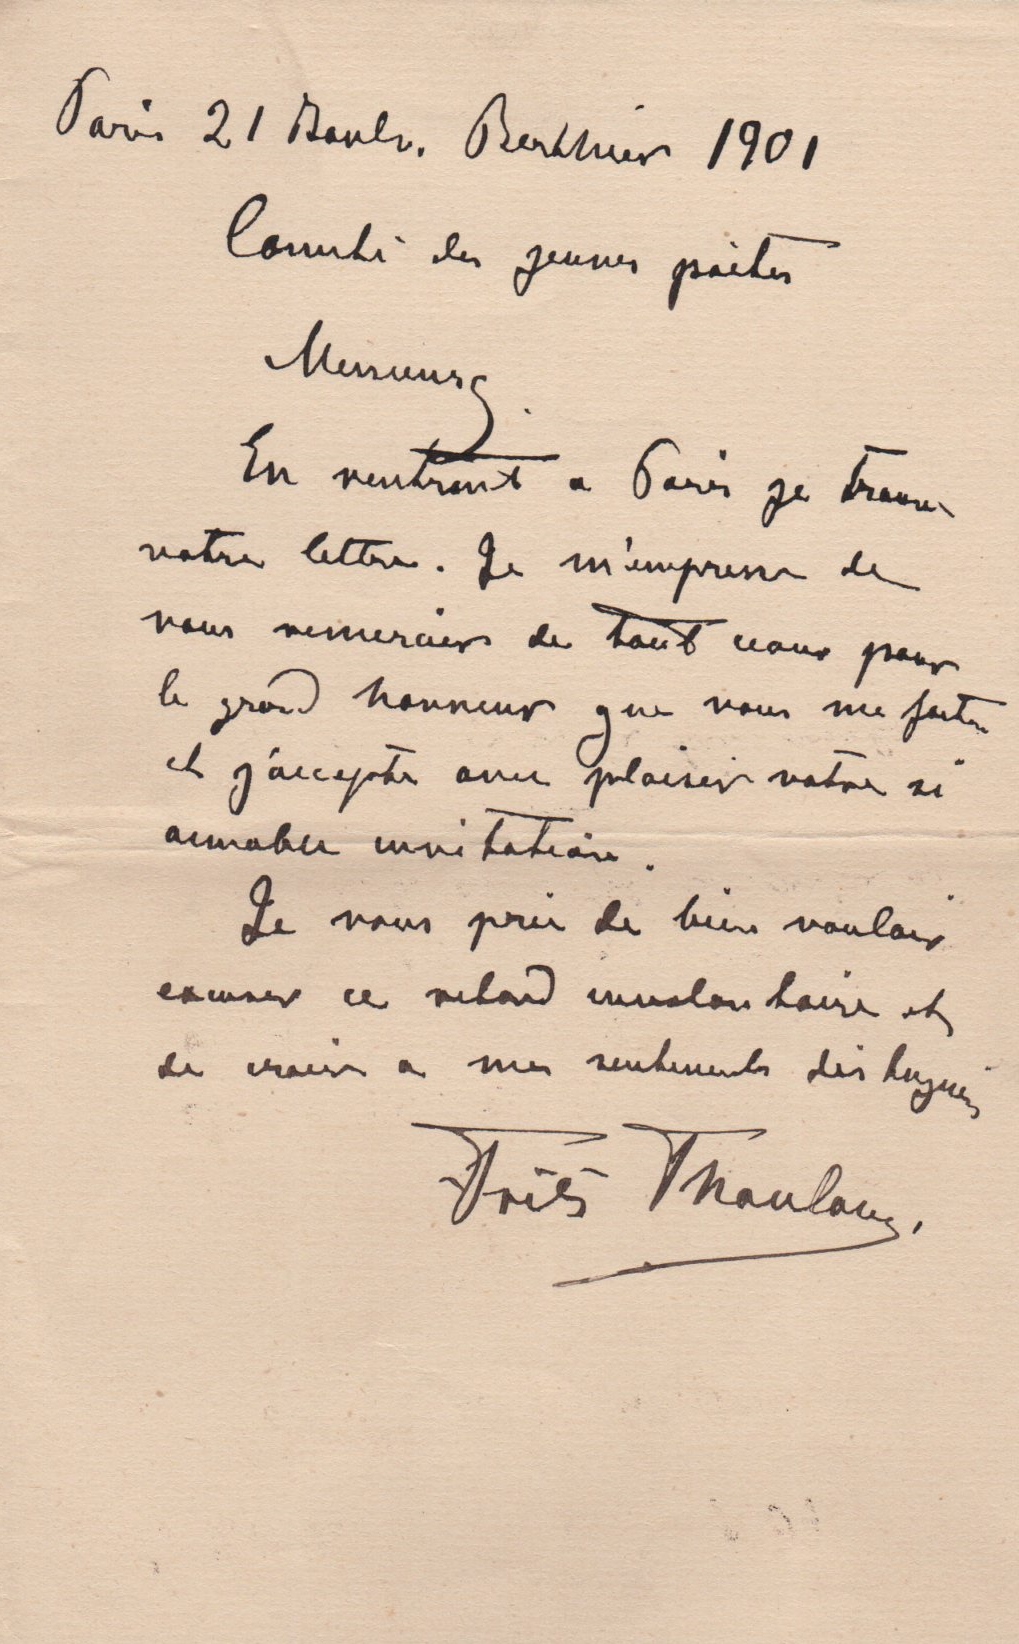 Paris 21 Boulv. Berthier 1901
Comité des jeunes poètes
Messieurs.
En rentrant a Paris je trouve
votre lettre. Je m'empresse de
vous remercier de tout coeur pour
le grand honneur que vous me faites
et j'accepte avec plaisir votre si
aimable invitation.
Je vous prie de bien vouloir
excuser ce retard involontaire et
de croire a mes sentiments distingués
Frits Thaulow.